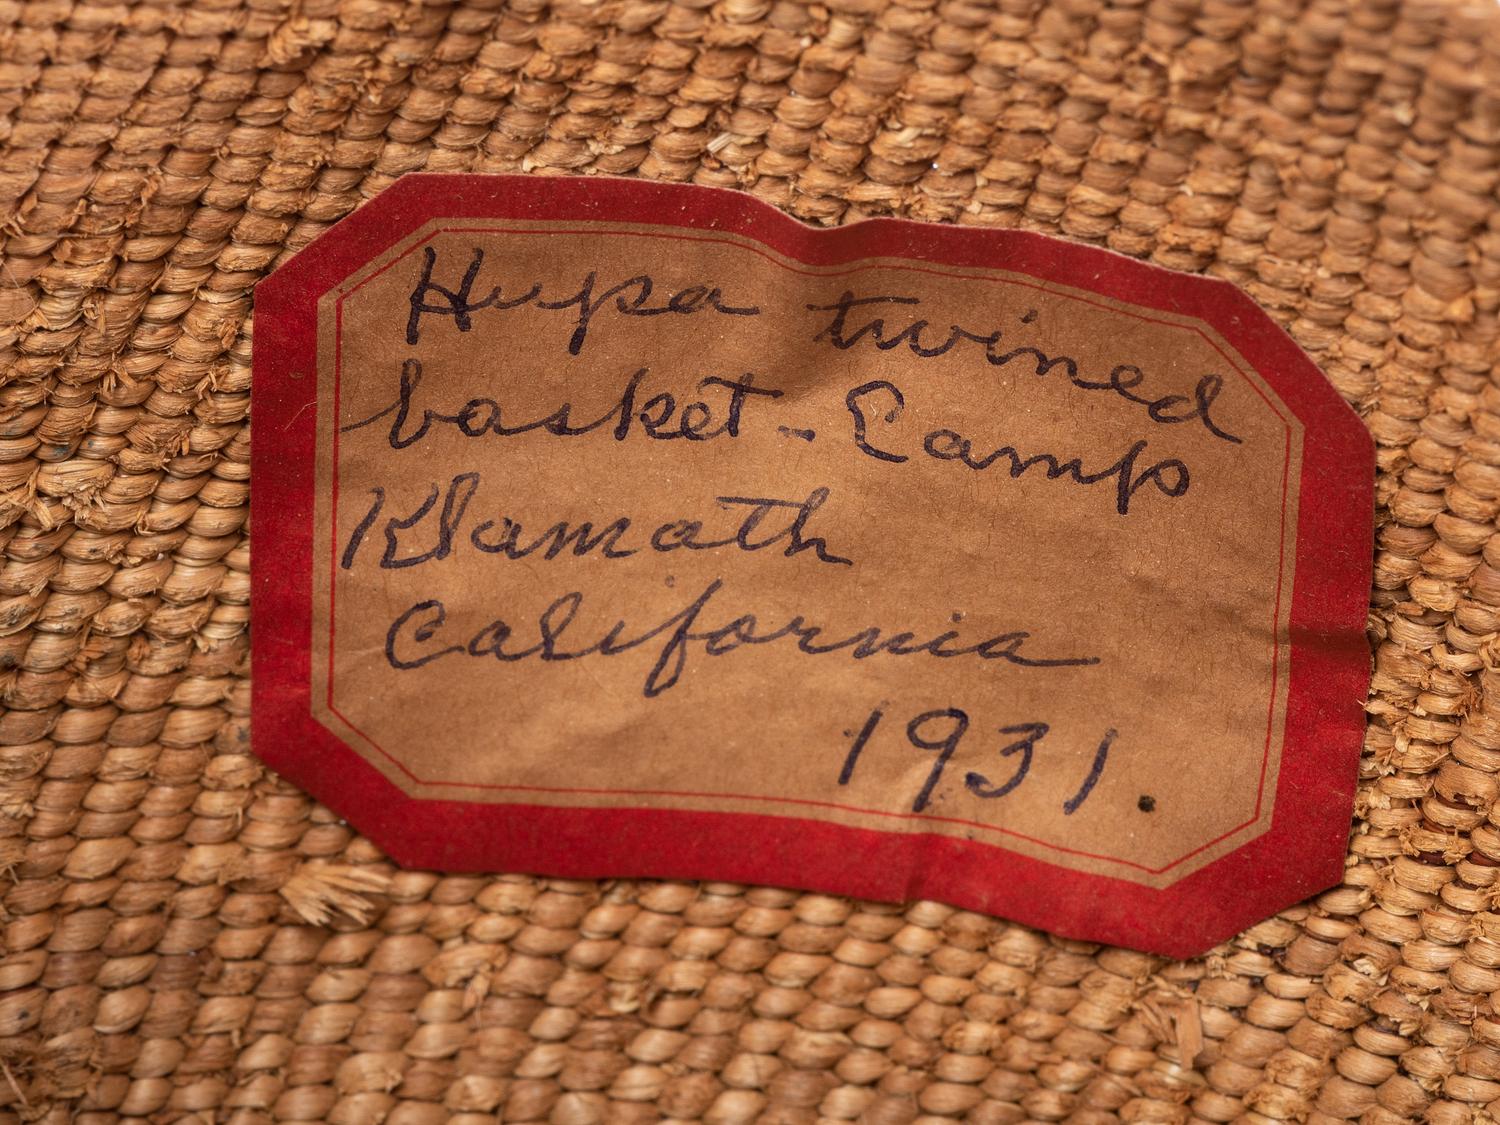 Hupa twined
basket - Camp
Klamath
California
1931.